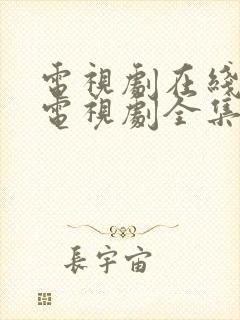 電視劇在綫
電視劇全集
長宇宙